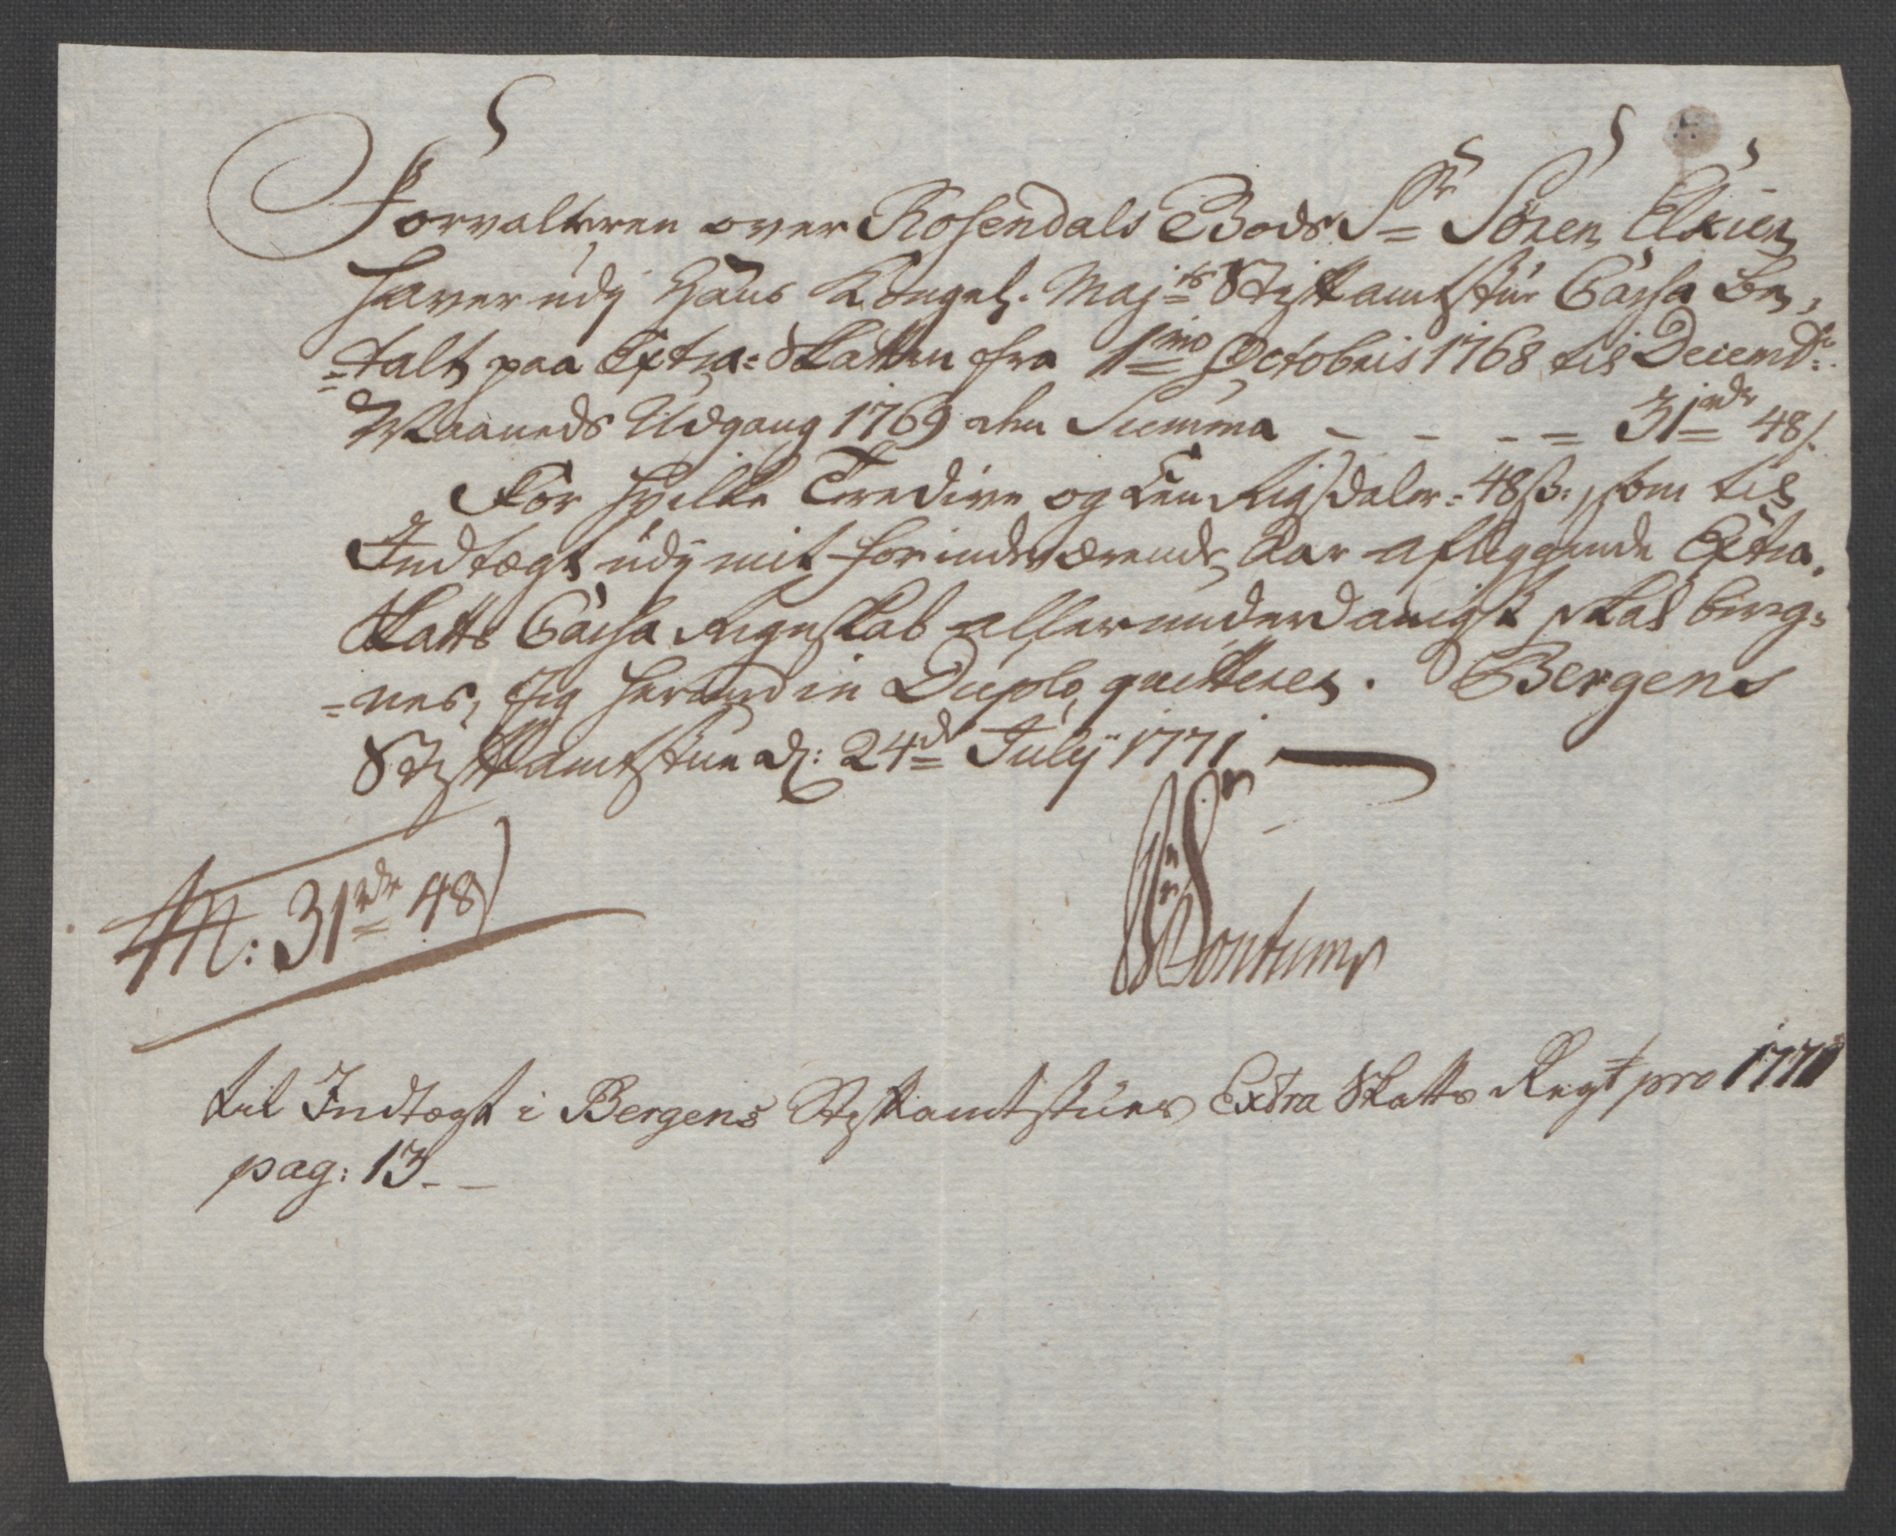 Forvalteren over Rosendals Gods Sr Sören Elxien
haver udj Hans Kongel. Majts Stiftamtstue Cassa be,
talt paa Extra-Skatten fra 1mo Octobris 1768 til Decembr:
Maaneds Udgang 1769 den Summa - - - - = 31rdr 48s.
For hvilke Tredive og Een Rigsdaler: 48 s:, som til
Indtægt udj mit for indeværende Aar aflæggende Extra.
Skatts Cassa Regnskab allerunderdanigst skal bereg-
nes, Jeg herved in Duplo, quitterer. Bergens
Stiftamtstue d: 24de Julij 1771
31rdr 48s
til Indtægt i Bergens Stiftamtstues Extra Skatts Regst pro 1771
pag: 13 - -